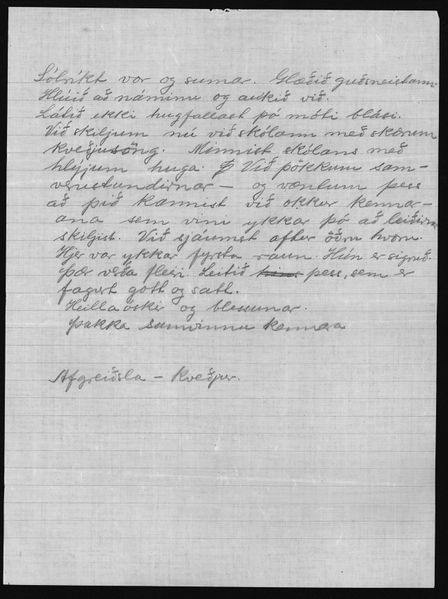 Sólríkt vor og sumar. Glæðið guðsneistann
Hlúið að náminu og aukið við.
Látið ekki hugfallast þó móti blási.
Við skiljum nú við skólann með skærum
kveðjusöng. Minnist skólans með
hlýjum huga. Við þökkum sam-
verustundirnar — og væntum þess
að þið kannist við okkur kennar-
ana sem vini ykkar þó að leiðirnar
skiljist. Við sjáumst aftur öðru hvoru.
Hjer var ykkar fyrsta raun. Hún er sigruð.
Þær verða fleiri. Leitið þess, sem er
fagurt gott og satt.
Heillaóskir og blessunar.
Þakka samvinnu kennara
Afgreiðsla — Kveðjur.